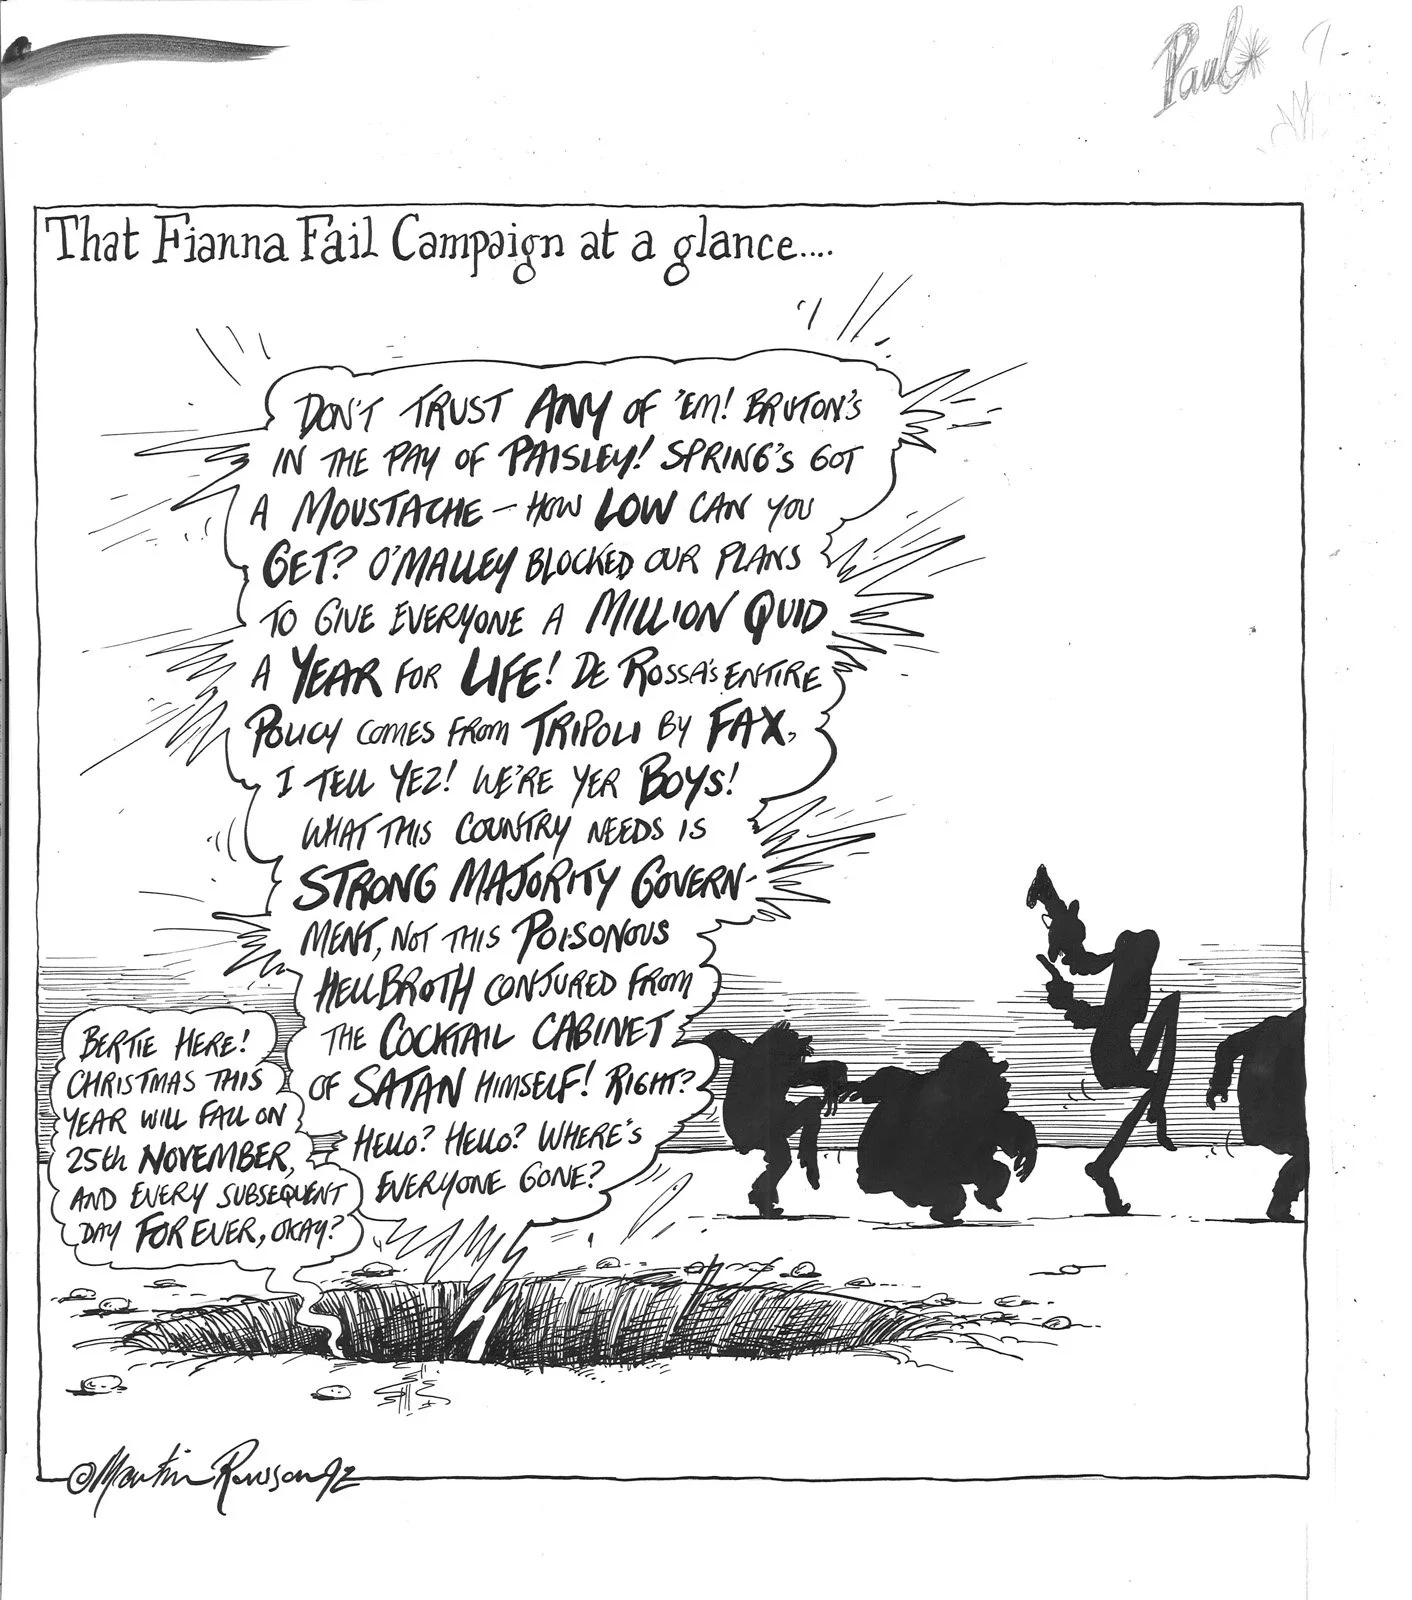 Paul
That Fianna Fail Campaign at a glance....
DON'T TRUST ANY OF 'EM! BRUTON'S
IN THE PAY OF PAISLEY! SPRING'S GOT
A MOUSTACHE – HOW LOW CAN YOU
GET? O'MALLEY BLOCKED OUR PLANS
TO GIVE EVERYONE A MILLION QUID
A YEAR FOR LIFE! DE ROSSA'S ENTIRE
POLICY COMES FROM TRIPOLI BY FAX,
I TELL YEZ! WE'RE YER BOYS!
WHAT THIS COUNTRY NEEDS IS
STRONG MAJORITY GOVERN-
MENT, NOT THIS POISONOUS
HELLBROTH CONJURED FROM
THE COCKTAIL CABINET
OF SATAN HIMSELF! RIGHT?
HELLO? HELLO? WHERE'S
EVERYONE GONE?
BERTIE HERE!
CHRISTMAS THIS
YEAR WILL FALL ON
25th NOVEMBER,
AND EVERY SUBSEQUENT
DAY FOREVER, OKAY?
©Martin Rowson 92